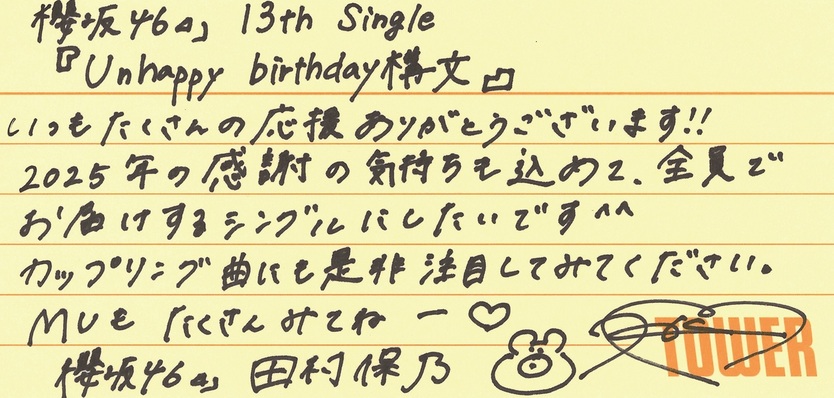 櫻坂46の 13th Single
『Unhappy birthday構文』
いつもたくさんの応援ありがとうございます!!
2025年の感謝の気持ちも込めて、全員で
お届けするシングルにしたいです^^
カップリング曲にも是非注目してみてください。
MVもたくさんみてねー♡
櫻坂46 田村保乃
TOWER